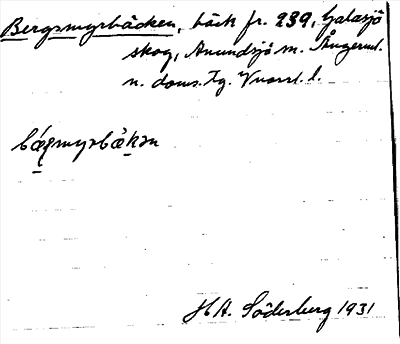 Bergsmyrbäcken, bäck fr. 239, Galasjö
skog, Anundsjö sn. Ångerml.
n. doms. Tg.
bæ̨rsmyrbäkən
H A. Söderberg 1931